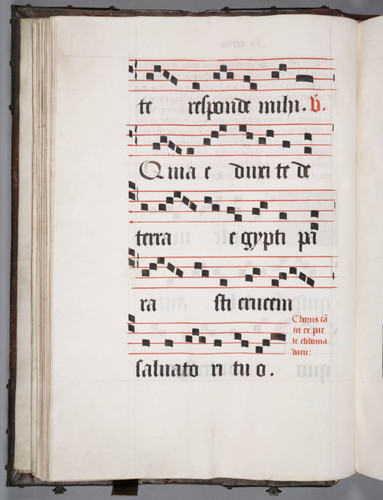 te responde mihi. V.
Quia eduxi te de
terra egypti pa
ra sti crucem
saluato ri tu o.
Chorus cā
tet ex par
te ebdoma
darii: